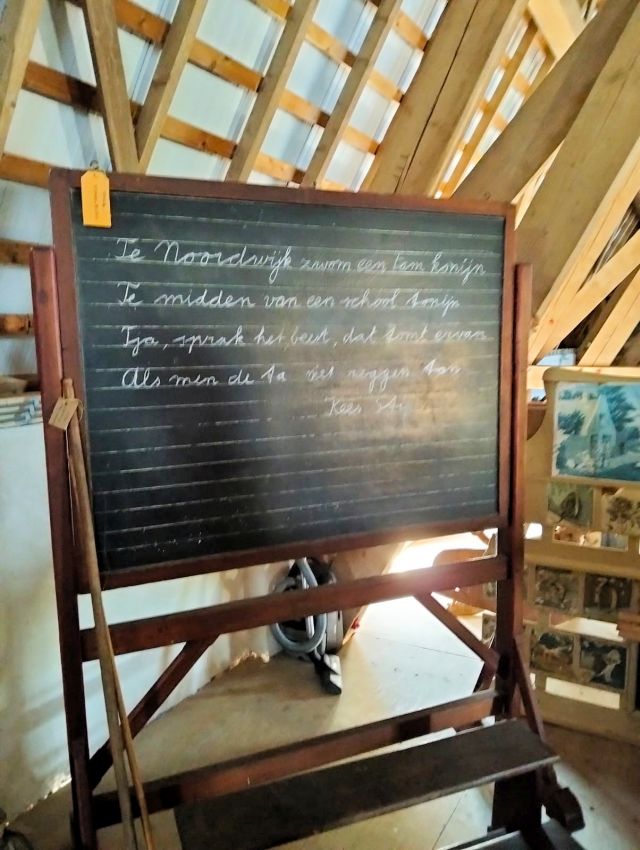 Te Noordwijk zwom een tam konijn
Te midden van een school tonijn
Tja, sprak het beest, dat komt ervan
Als men de ka niet zeggen kan
Kees